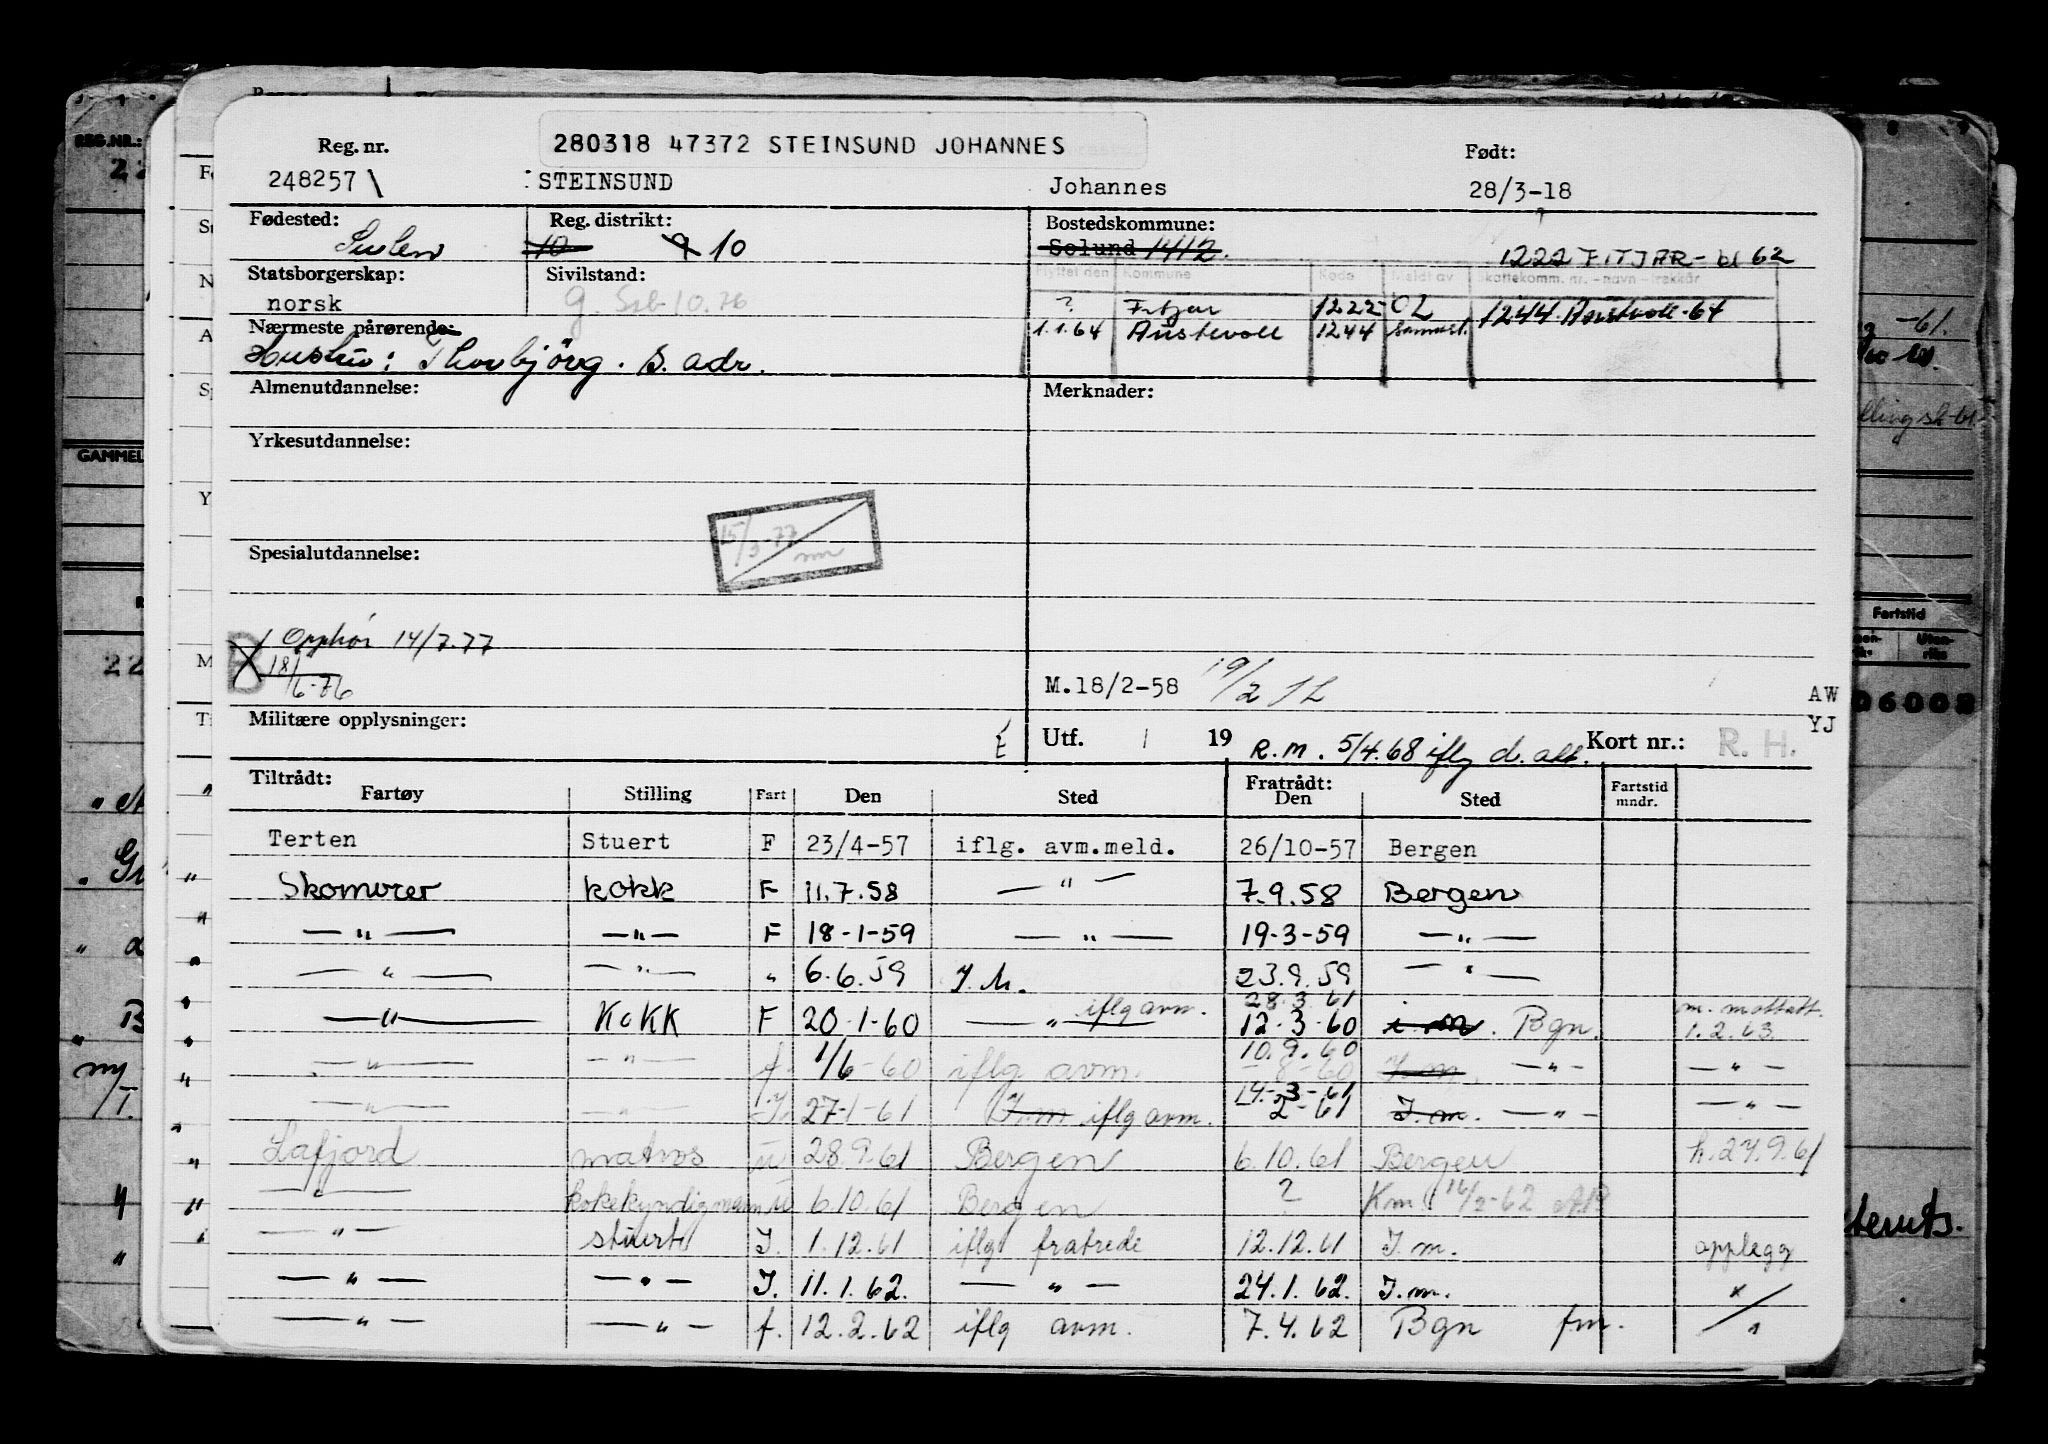 280318 47372 STEINSUND JOHANNES
Reg. nr. Født:
248257 STEINSUND Johannes 28/3-18
Fødested: Reg. distrikt: Bostedskommune:
Sulen 10 9 10 Solund 1412. 1222 FITJAR - bl 62
Statsborgerskap: Sivilstand: Flyttet den Kommune Kode Meldt av Skattekomm. nr. - navn - trekkår
norsk g. Ssb-10.76 ? Fitjar 1222 OL 1244 Austevoll-64
Nærmeste pårørende: 1.1.64 Austevoll 1244
Hustru: Thorbjörg. s. adr.
Almenutdannelse: Merknader:
Yrkesutdannelse:
15/3-77
Spesialutdannelse:
Opphør 14/7.77
B 18/6-76
M.18/2-58 19/2 AW
Militære opplysninger: Utf. 19 R.M. 5/4.68 iflg d. att. Kort nr.: R. H. YJ
Tiltrådt: Fratrådt:
Fartøy Stilling Fart Den Sted Den Sted Fartstid mndr.
Terten Stuert F 23/4-57 iflg. avm.meld. 26/10-57 Bergen
Skomvær kokk F 11.7.58 — " — 7.9.58 Bergen
— " — — " — F 18-1-59 — " — 19-3-59 — " —
— " — — " — " 6.6.59 I.M. 23.9.59 — " —
— " — KOKK F 20-1-60 — " — iflg avm. 28.3.61 12-3-60 i m. Bgn. m. mottatt. 1.2.63
— " — — " — f. 1/6-60 iflg avm. 10.9.60 -8-60 I.m. — " — — " —
— " — — " — I. 27-1-61 I.m iflg avm. 14-3-61 2-61 I.m. — " — — " —
Lafjord matros u 28.9.61 Bergen 6.10.61 Bergen h.27.9.61
— " — kokekyndigmann u 6.10.61 Bergen ? Km 16/2-62
— " — stuert I. 1.12.61 iflg fratrede 12.12.61 I.m. opplegg
— " — — " — I. 11.1.62. — " — 24.1.62. I.m.
— " — — " — f. 12.2.62 iflg avm. 7.4.62 Bgn fm.
REG.NR.:
GAMMEL
Fartstid
06008